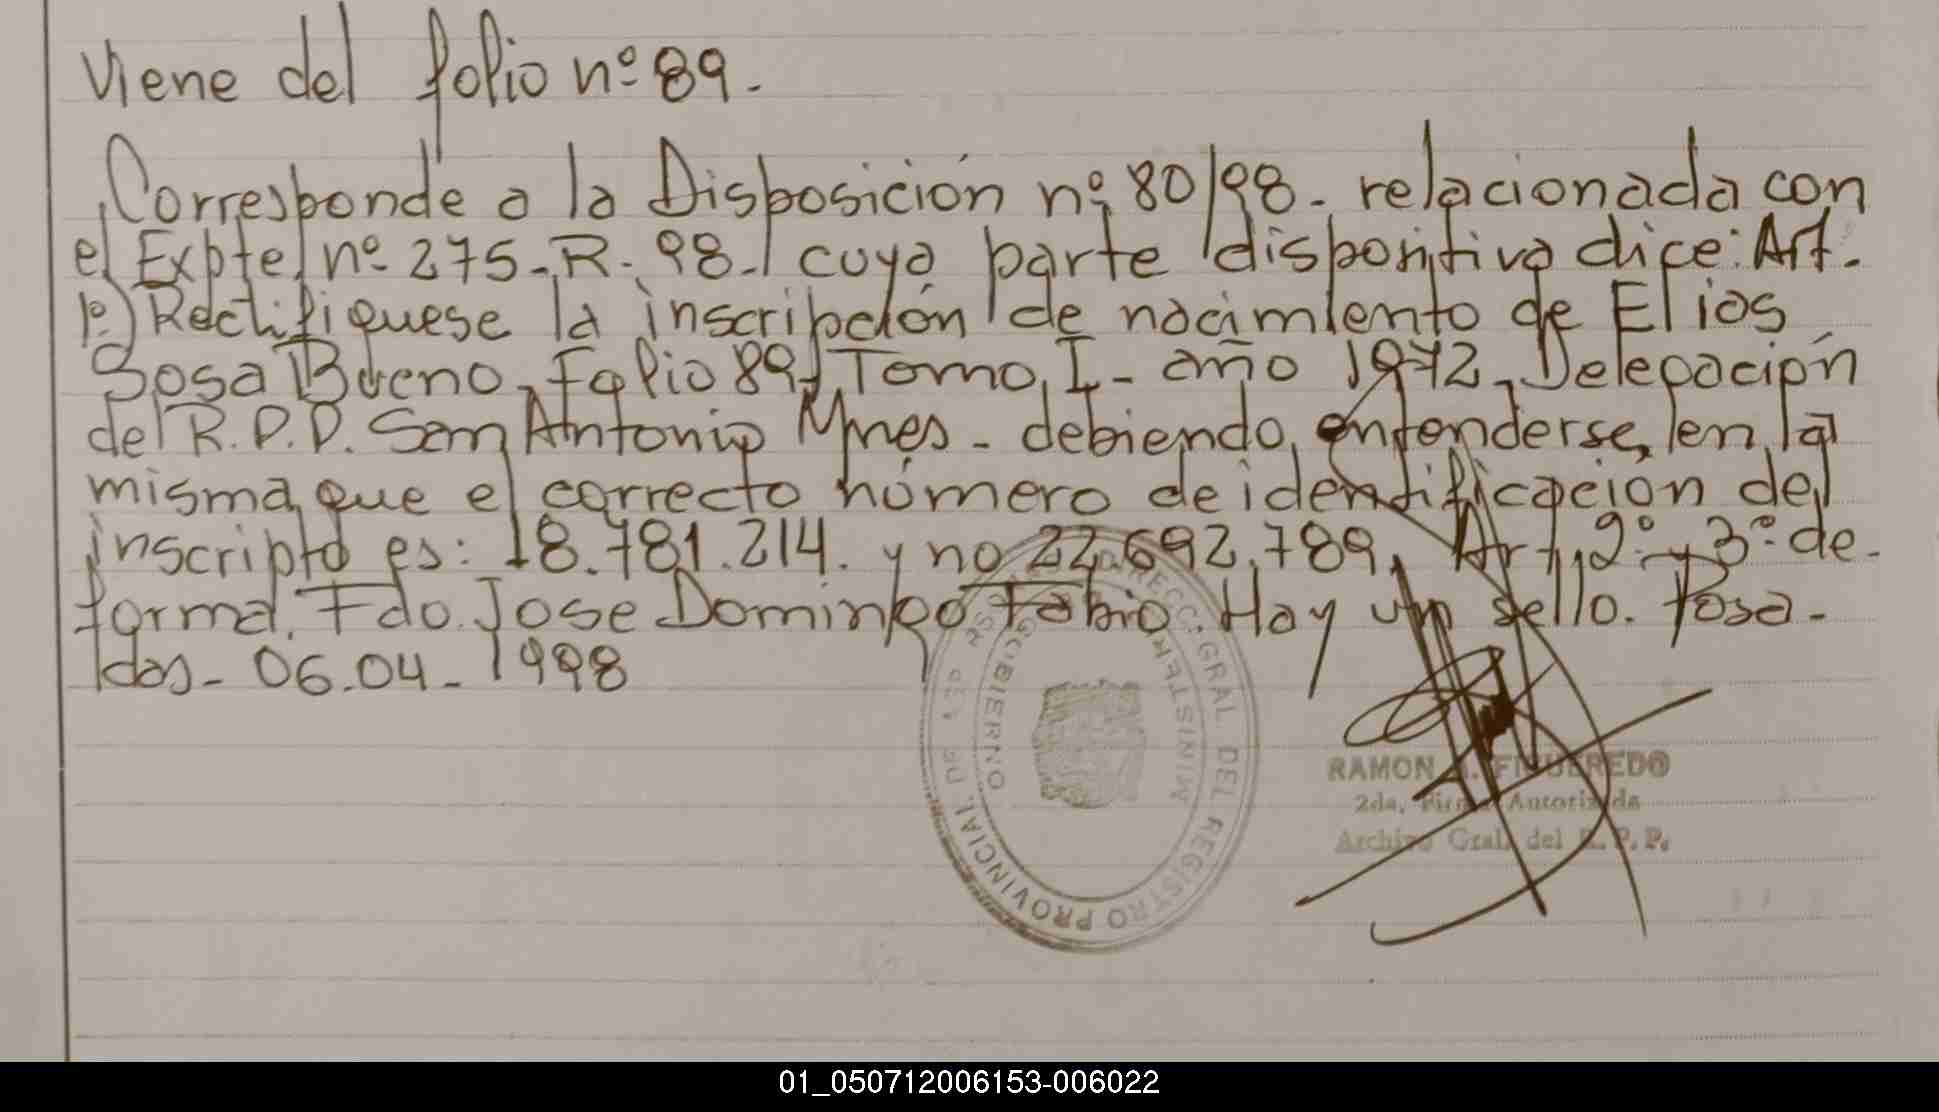 Viene del folio nº 89.
Corresponde a la Disposición nº 80/98. relacionada con
el Expte nº 275-R-98- cuya parte dispositiva dice: Art.
1º) Rectifiquese la inscripción de nacimiento de Elios
Sosa Bueno, Folio 89, Tomo I- año 1972, Delegación
del R.P.P. San Antonio Mnes- debiendo entenderse, en la
misma que el correcto número de identificación del
inscripto es: 18.781.214. y no 22.692.789. Art. 2º y 3º de
forma. Fdo. Jose Domingo Fabio. Hay un sello. Posa-
das- 06.04-1998
DIRECC. GRAL. DEL REGISTRO PROVINCIAL DE LAS PERSONAS
MINISTERIO GOBIERNO
RAMON FIGUEREDO
2da. Firma Autorizada
Archivo Gral. del R.P.P.
01_050712006153-006022